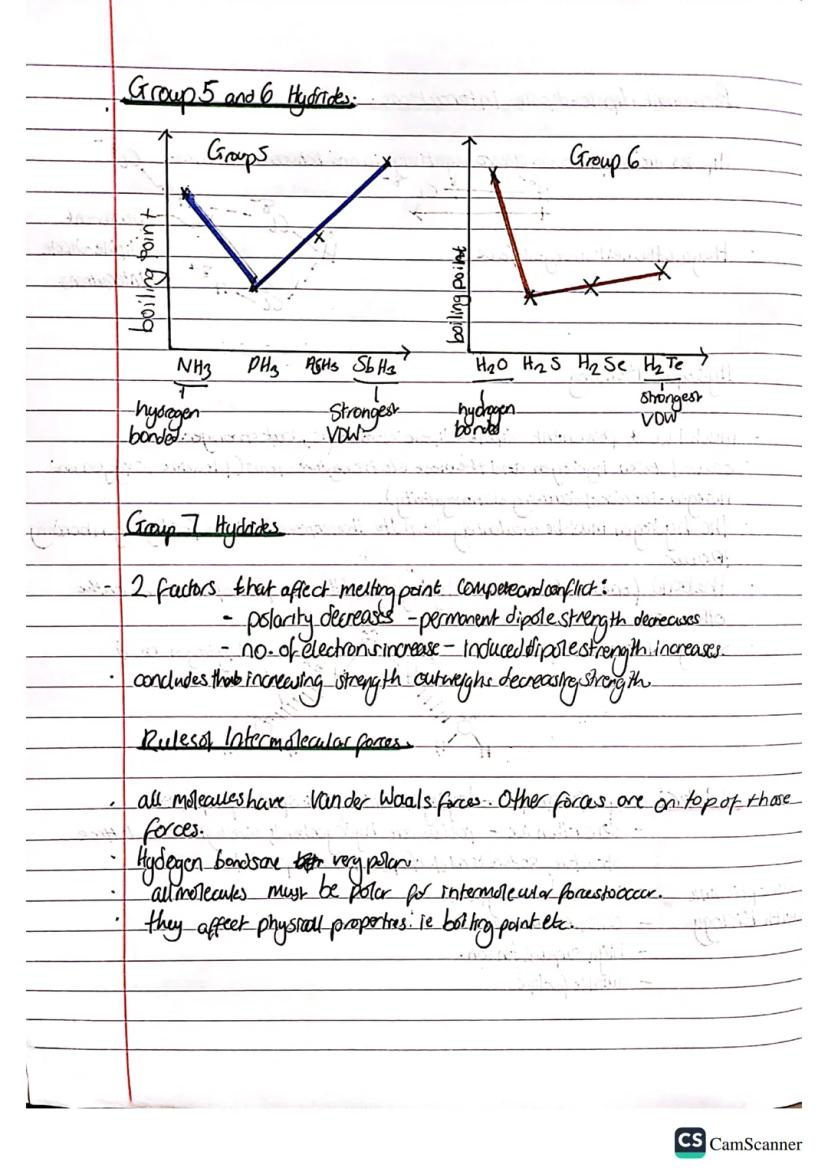 Group 5 and 6 Hydrides.
Group 5
boiling point
NH3 PH3 AsH3 SbH3
hydrogen
bonded.
Strongest
VDW
Group 6
boiling point
H2O H2S H2Se H2Te
hydrogen
bonded
strongest
VDW
Group 7 Hydrides
- 2 factors that affect melting point compete and conflict:
- polarity decreases - permanent dipole strength decreases
- no. of electrons increase - induced dipole strength increases.
· concludes that increasing strength outweighs decreasing strength
Rules of Intermolecular forces.
· all molecules have Van der Waals forces. Other forces are on top of those
forces.
· Hydegen bonds are very polar.
· all molecules must be polar for intermolecular forces to occur.
· they affect physicall properties. ie boiling point etc.
CS CamScanner